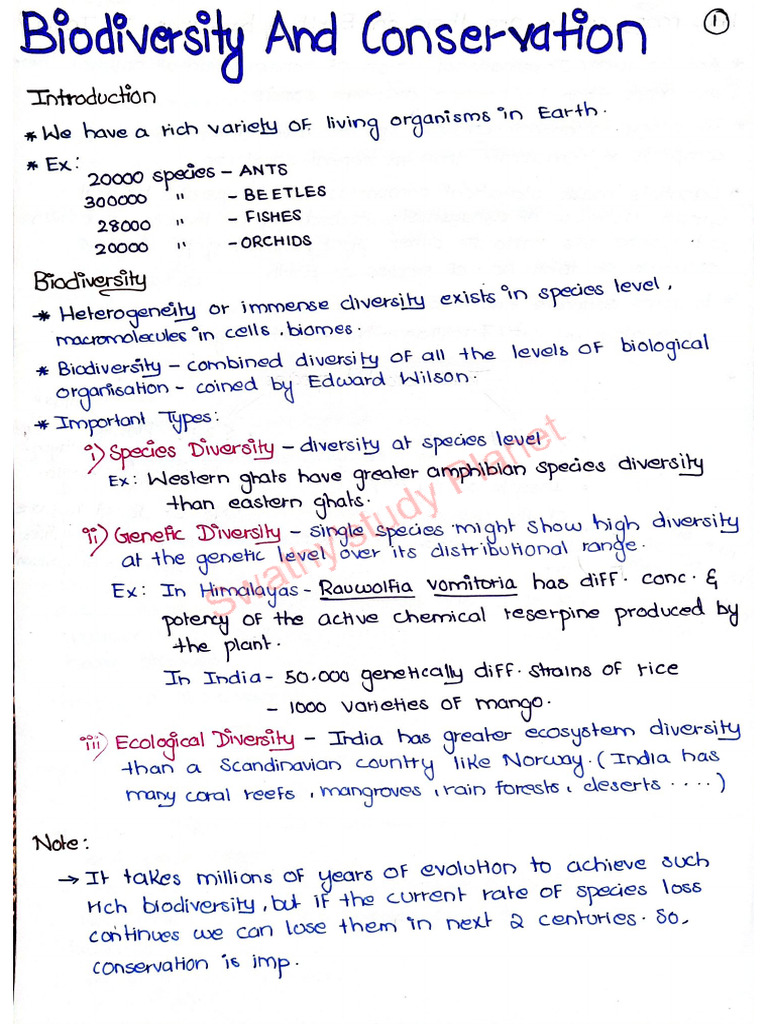 Biodiversity And Conservation
1
Introduction
* We have a rich variety of living organisms in Earth.
* Ex:
20000 species - ANTS
300000 " - BEETLES
28000 " - FISHES
20000 " - ORCHIDS
Biodiversity
* Heterogeneity or immense diversity exists in species level,
macromolecules in cells, biomes.
* Biodiversity - combined diversity of all the levels of biological
organisation - coined by Edward Wilson.
* Important Types:
i) Species Diversity - diversity at species level
Ex: Western ghats have greater amphibian species diversity
than eastern ghats.
ii) Genetic Diversity - single species might show high diversity
at the genetic level over its distributional range.
Ex: In Himalayas - Rauwolfia vomitoria has diff. conc. &
potency of the active chemical reserpine produced by
the plant.
In India - 50,000 genetically diff. strains of rice
- 1000 varieties of mango.
iii) Ecological Diversity - India has greater ecosystem diversity
than a Scandinavian country like Norway. (India has
many coral reefs, mangroves, rain forests, deserts ....)
Note:
→ It takes millions of years of evolution to achieve such
rich biodiversity, but if the current rate of species loss
continues we can lose them in next 2 centuries. So,
conservation is imp.
Swathy study Planet